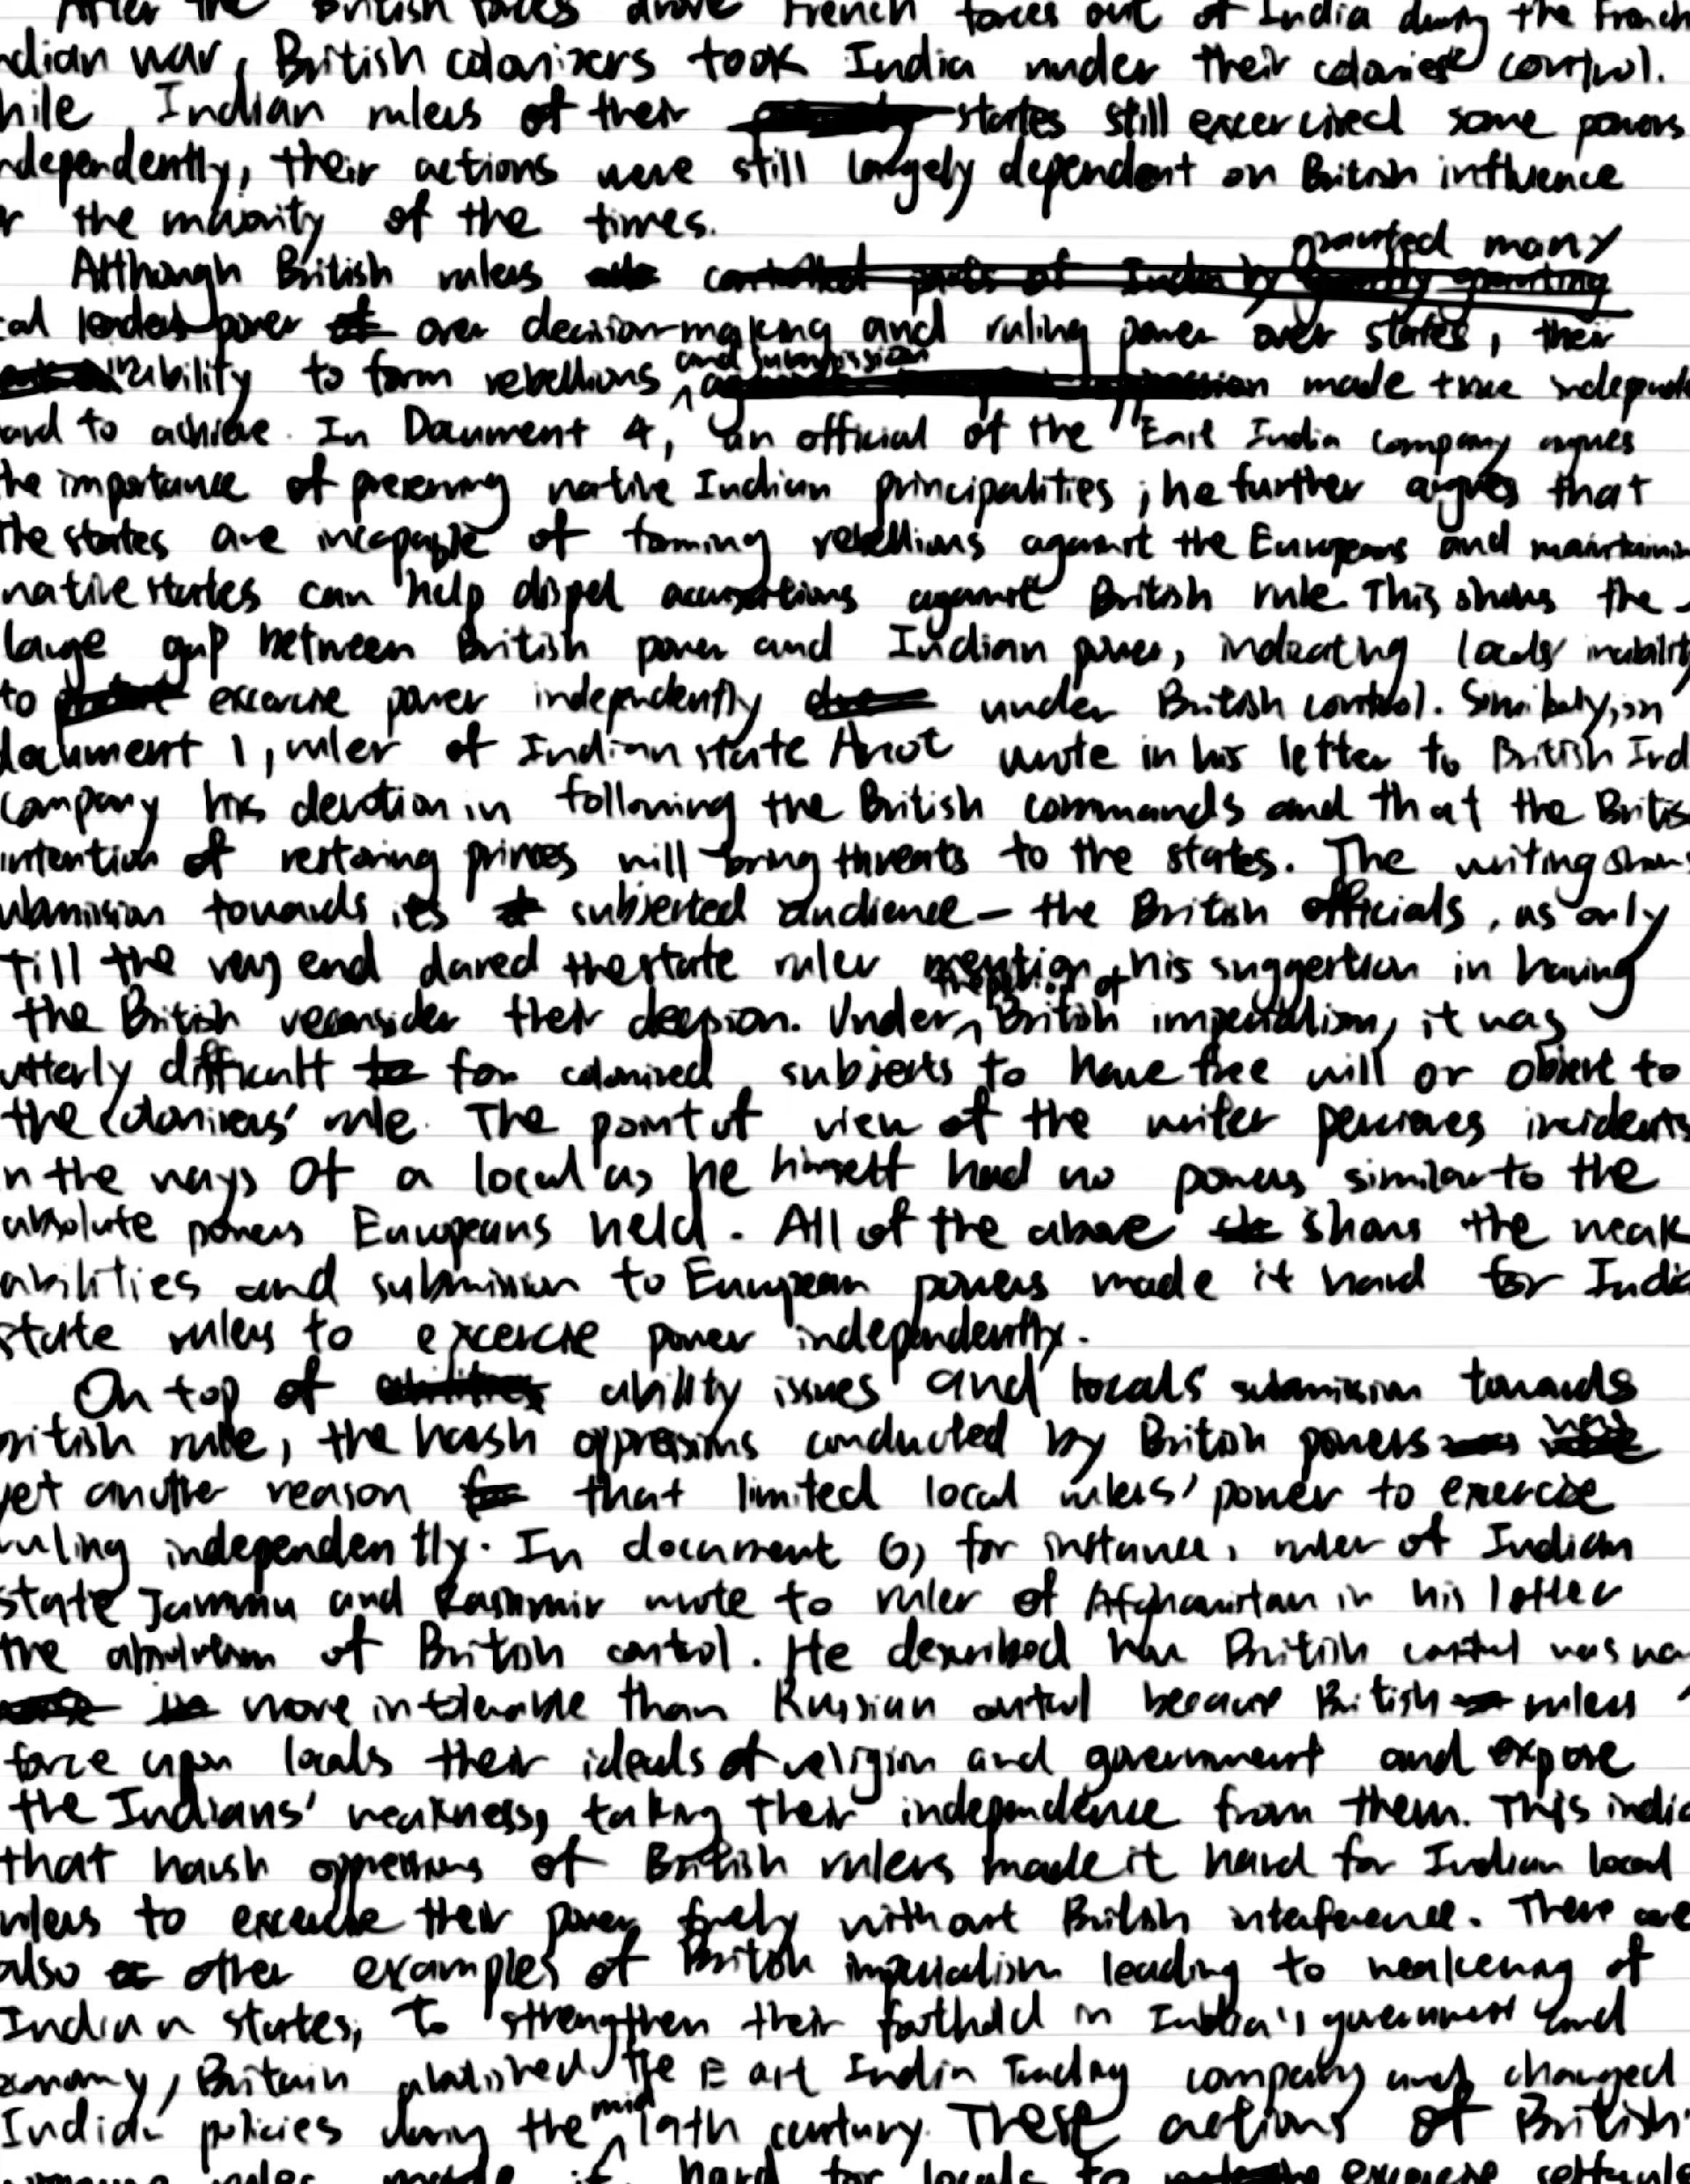 After the British forces drove French forces out of India during the French
dian war, British colonizers took India under their control.
hile Indian rulers of their states still excercised some powers
dependently, their actions were still largely dependent on British influence
r the majority of the times.
granted many
Although British rulers
cal leaders power over decision-making and ruling power over states, their
inability to form rebellions and submission made true independ
ard to achieve. In Document 4, an official of the East India Company argues
he importance of preserving native Indian principalities; he further argues that
the states are incapable of forming rebellions against the Europeans and maintainin
native states can help dispel accusations against British rule. This shows the
large gap between British power and Indian power, indicating locals' inability
to excercise power independently under British control. Similarly, in
document 1, ruler of Indian state wrote in his letter to British Ind
company his devotion in following the British commands and that the Britis
intention of restoring princes will bring threats to the states. The writing shows
ubmission towards its subjected audience – the British officials, as only
till the very end dared the state ruler mention his suggestion in having
the British reconsider their decision. Under British imperialism, it was
utterly difficult for colonized subjects to have free will or object to
the colonizers' rule. The point of view of the writer perceives incidents
n the ways of a local as he himself had no powers similar to the
absolute powers Europeans held. All of the above shows the weak
abilities and submission to European powers made it hard for India
state rulers to excercise power independently.
On top of ability issues and locals submission towards
ritish rule, the harsh oppressions conducted by British powers was
yet another reason that limited local rulers' power to exercise
ruling independently. In document 6, for instance, ruler of Indian
state Jammu and Kashmir wrote to ruler of Afghanistan in his letter
the absolutism of British control. He described how British control was
more intolerable than Russian control because British rulers
force upon locals their ideals of religion and government and expose
the Indians' weakness, taking their independence from them. This indic
that harsh oppressions of British rulers made it hard for Indian local
rulers to excercise their power freely without British interference. There are
also other examples of British imperialism leading to weakening of
Indian states, to strengthen their foothold in India's government and
conomy, Britain abolished the East India Trading company and changed
Indian policies during the mid 19th century. These actions of British
made it hard for locals to excercise